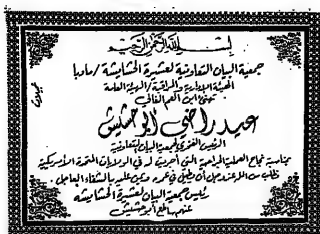 بسم الله الرحمن الرحيم
جمعية البيان التعاونية لعشيرة الحشايشة / مادبا
الهيئة الإدارية والمراقبة / الهيئة العامة
تهنئ ابن العم الغالي
عيد راضي ابو حشايش
الرئيس الفخري لجمعية البيان التعاونية
بمناسبة نجاح العملية الجراحية التي أجريت له في الولايات المتحدة الأمريكية
من الله عز وجل أن يطيل في عمره ويمن عليه بالشفاء العاجل
رئيس جمعية البيان لعشيرة الحشايشه